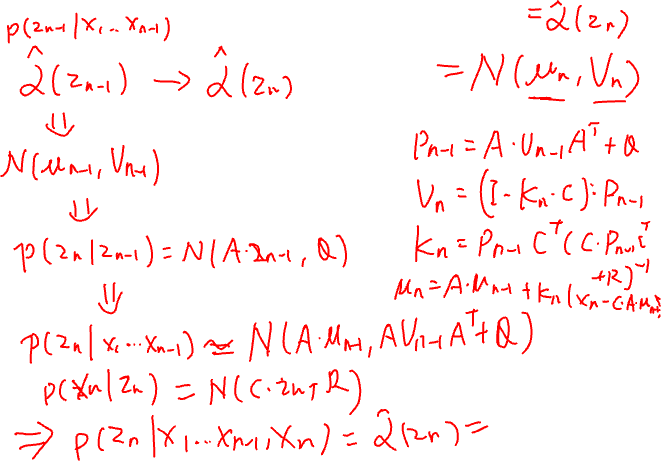 p(z_{n-1}|x_1...x_{n-1})
\hat{α}(z_{n-1}) → \hat{α}(z_n)
⇓
N(μ_{n-1}, V_{n-1})
⇓
p(z_n|z_{n-1}) = N(A·z_{n-1}, Q)
⇓
p(z_n|x_1...x_{n-1}) ≃ N(A·μ_{n-1}, AV_{n-1}A^T+Q)
p(x_n|z_n) = N(C·z_n, R)
⇒ p(z_n|x_1...x_{n-1}, x_n) = \hat{α}(z_n) =
= \hat{α}(z_n)
= N(μ_n, V_n)
P_{n-1} = A·V_{n-1}A^T+Q
V_n = (I-K_n·C):P_{n-1}
K_n = P_{n-1}C^T(C·P_{n-1}C^T
+R)^{-1}
μ_n = A·μ_{n-1}+K_n(x_n-C·A·μ_{n-1})